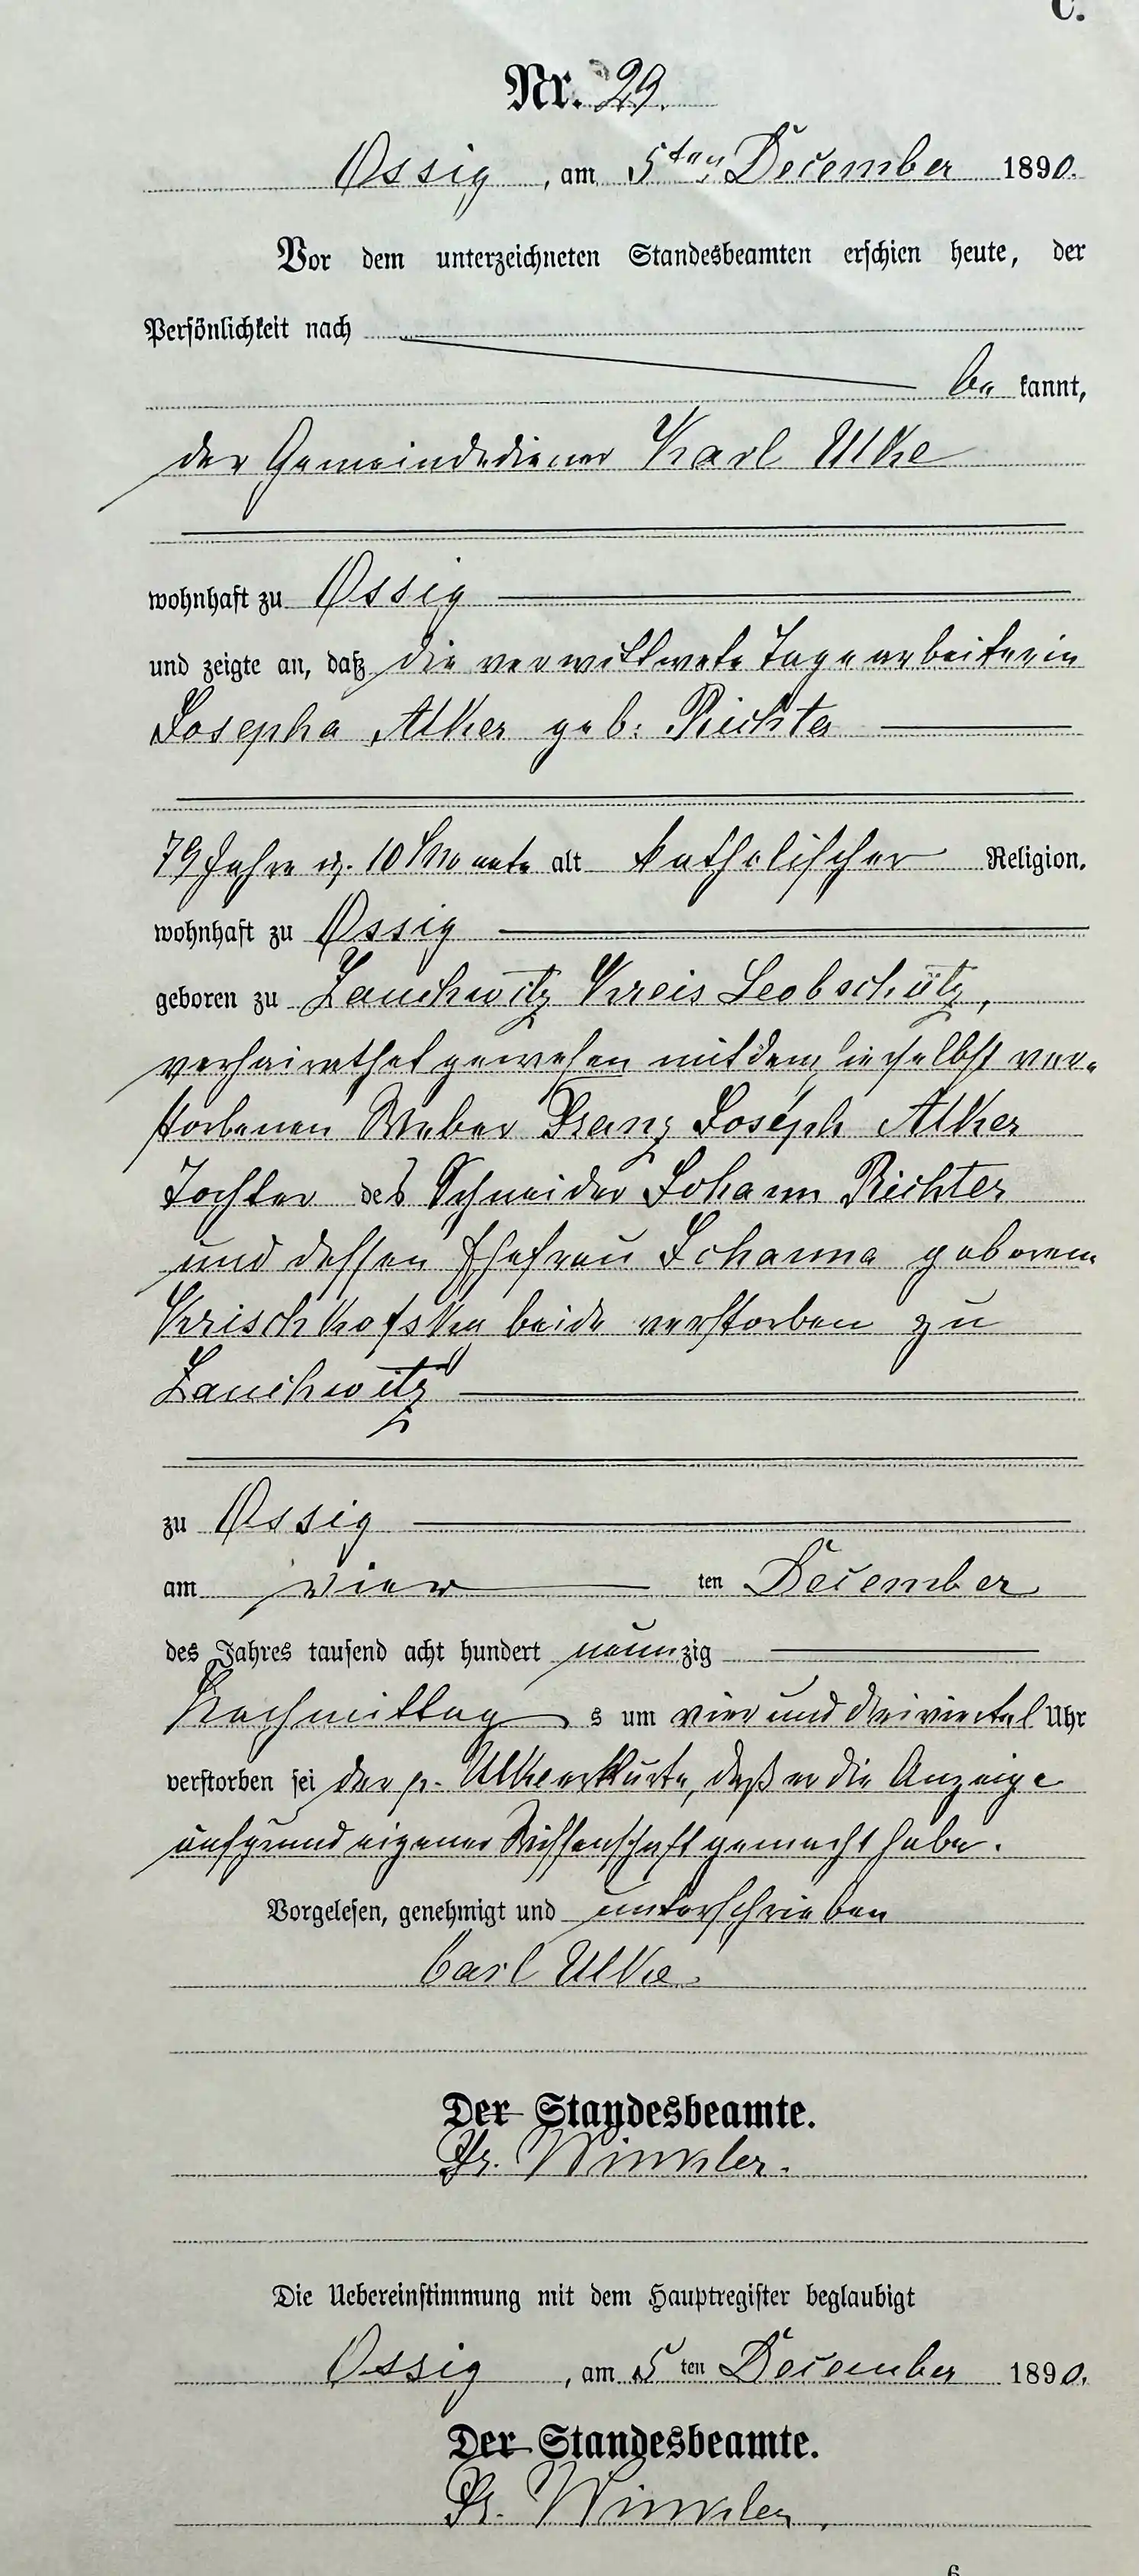 C.
Nr. 29.
Ossig, am 5ten December 1890.
Vor dem unterzeichneten Standesbeamten erschien heute, der
Persönlichkeit nach
be kannt,
der Gemeindediener Karl Ulke
wohnhaft zu Ossig
und zeigte an, daß die verwittwete Tagearbeiterin
Josepha Alker geb: Richter
79 Jahre u. 10 Monate alt katholischer Religion,
wohnhaft zu Ossig
geboren zu Zauchwitz Kreis Leobschütz,
verheirathet gewesen mit dem hierselbst ver-
storbenen Weber Franz Joseph Alker
Tochter des Schneider Johann Richter
und dessen Ehefrau Johanna geborene
beide verstorben zu
Zauchwitz
zu Ossig
am vier ten December
des Jahres tausend acht hundert neunzig
Nachmittag s um vier und dreiviertel Uhr
verstorben sei der p. Ulke erklärte, daß er die Anzeige
aufgrund eigener Wissenschaft gemacht habe.
Vorgelesen, genehmigt und unterschrieben
Carl Ulke.
Der Standesbeamte.
Fr. Winkler.
Die Uebereinstimmung mit dem Hauptregister beglaubigt
Ossig, am 5 ten December 1890.
Der Standesbeamte.
Fr. Winkler.
6